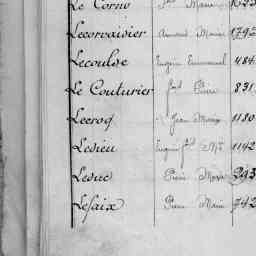 Le Corno Marie 1023
Lecorvaisier Armand Marie 1792
Lecoulse Eugène Emmanuel 484
Le Couturier Pierre 831
Lecrog Jean Marie 1180
Ledieu Eugène 1142
Leduc Pierre Marie 393
Lefaix Pierre Marie 742